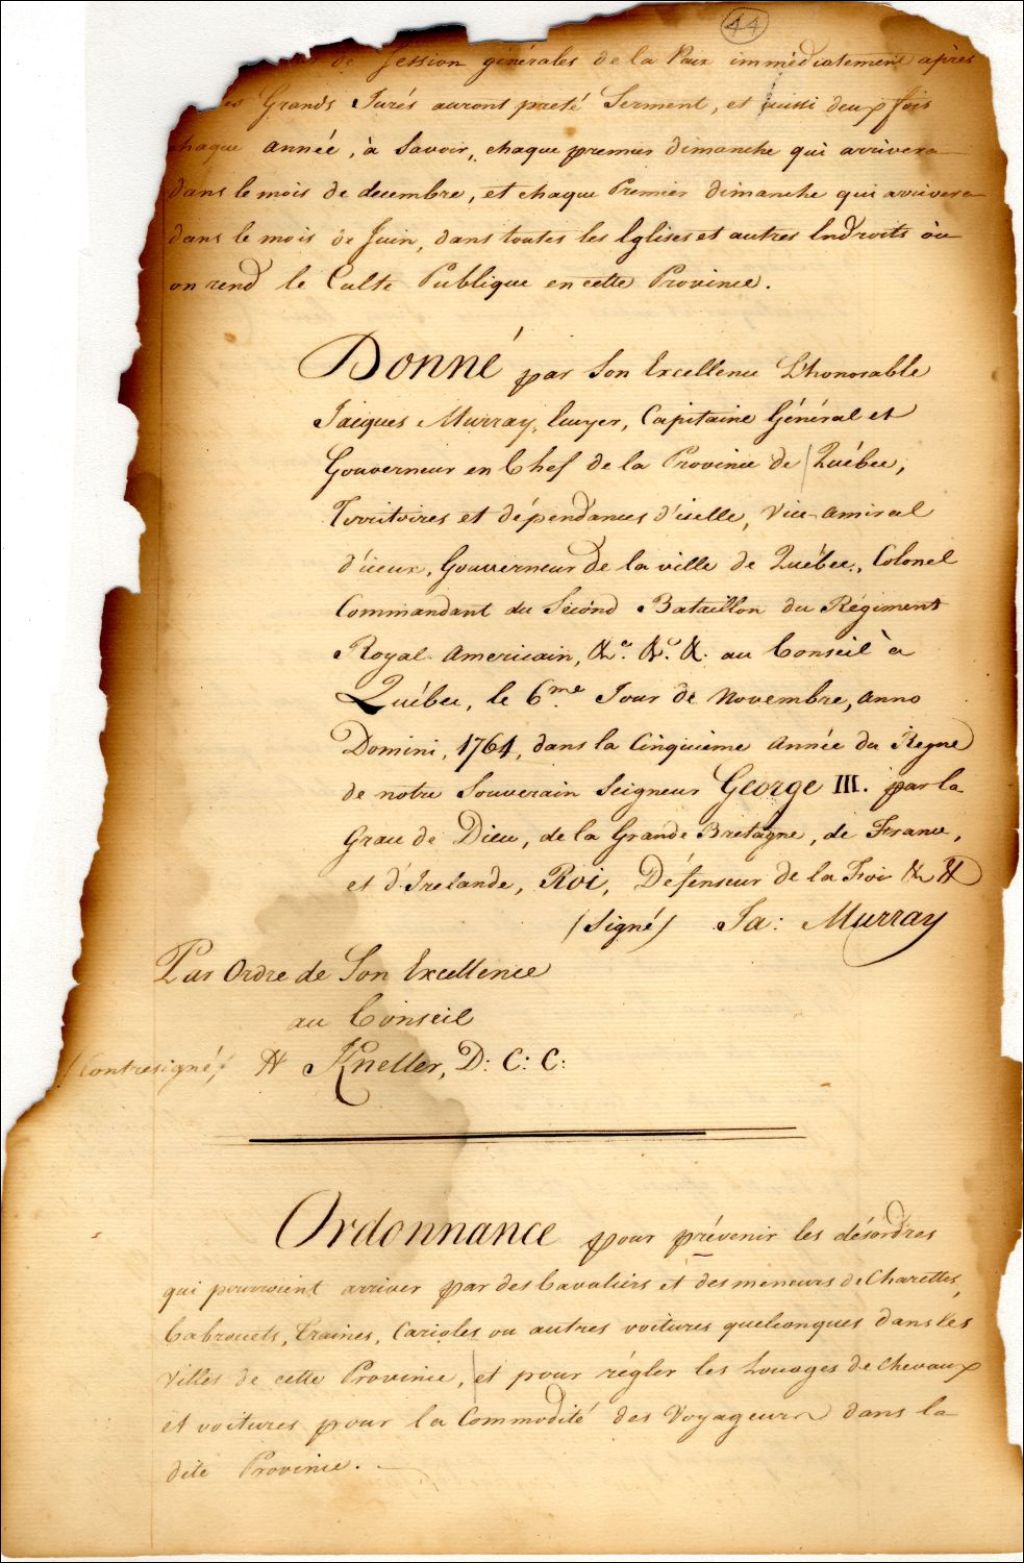 44
de Session générales de la Paix immédiatement après
Grands Jurés auront preté Serment, et aussi deux fois
chaque année, à Savoir, chaque premier dimanche qui arrivera
dans le mois de decembre, et chaque Premier dimanche qui arrivera
dans le mois de Juin, dans toutes les Eglises et autres Endroits où
on rend le Culte Publique en cette Province.
Donné par Son Excellence L'honorable
Jacques Murray, Ecuyer, Capitaine Général et
Gouverneur en Chef de la Province de Québec,
Territoires et dépendances d'icelle, Vice-Amiral
d'iceux, Gouverneur de la ville de Québec, Colonel
Commandant du Sécond Bataillon du Régiment
Royal Americain, &c. &c. &. au Conseil à
Québec, le 6.me Jour de Novembre, anno
Domini, 1764, dans la Cinquieme Année du Regne
de notre Souverain Seigneur George III. par la
Grace de Dieu, de la Grande Bretagne, de France,
et d'Irelande, Roi, Défenseur de la Foi & &
(Signé) Ja: Murray
Par Ordre de Son Excellence
au Conseil
(Contresigné) H Kneller, D: C: C:
Ordonnance pour prévenir les désordres
qui pourroient arriver par des Cavaliers et des meneurs de Charettes,
Cabrouets, Traines, Carioles ou autres voitures quelconques dans les
Villes de cette Province, et pour régler les Louages de Chevaux
et voitures pour la Commodité des Voyageurs dans la
dite Province.